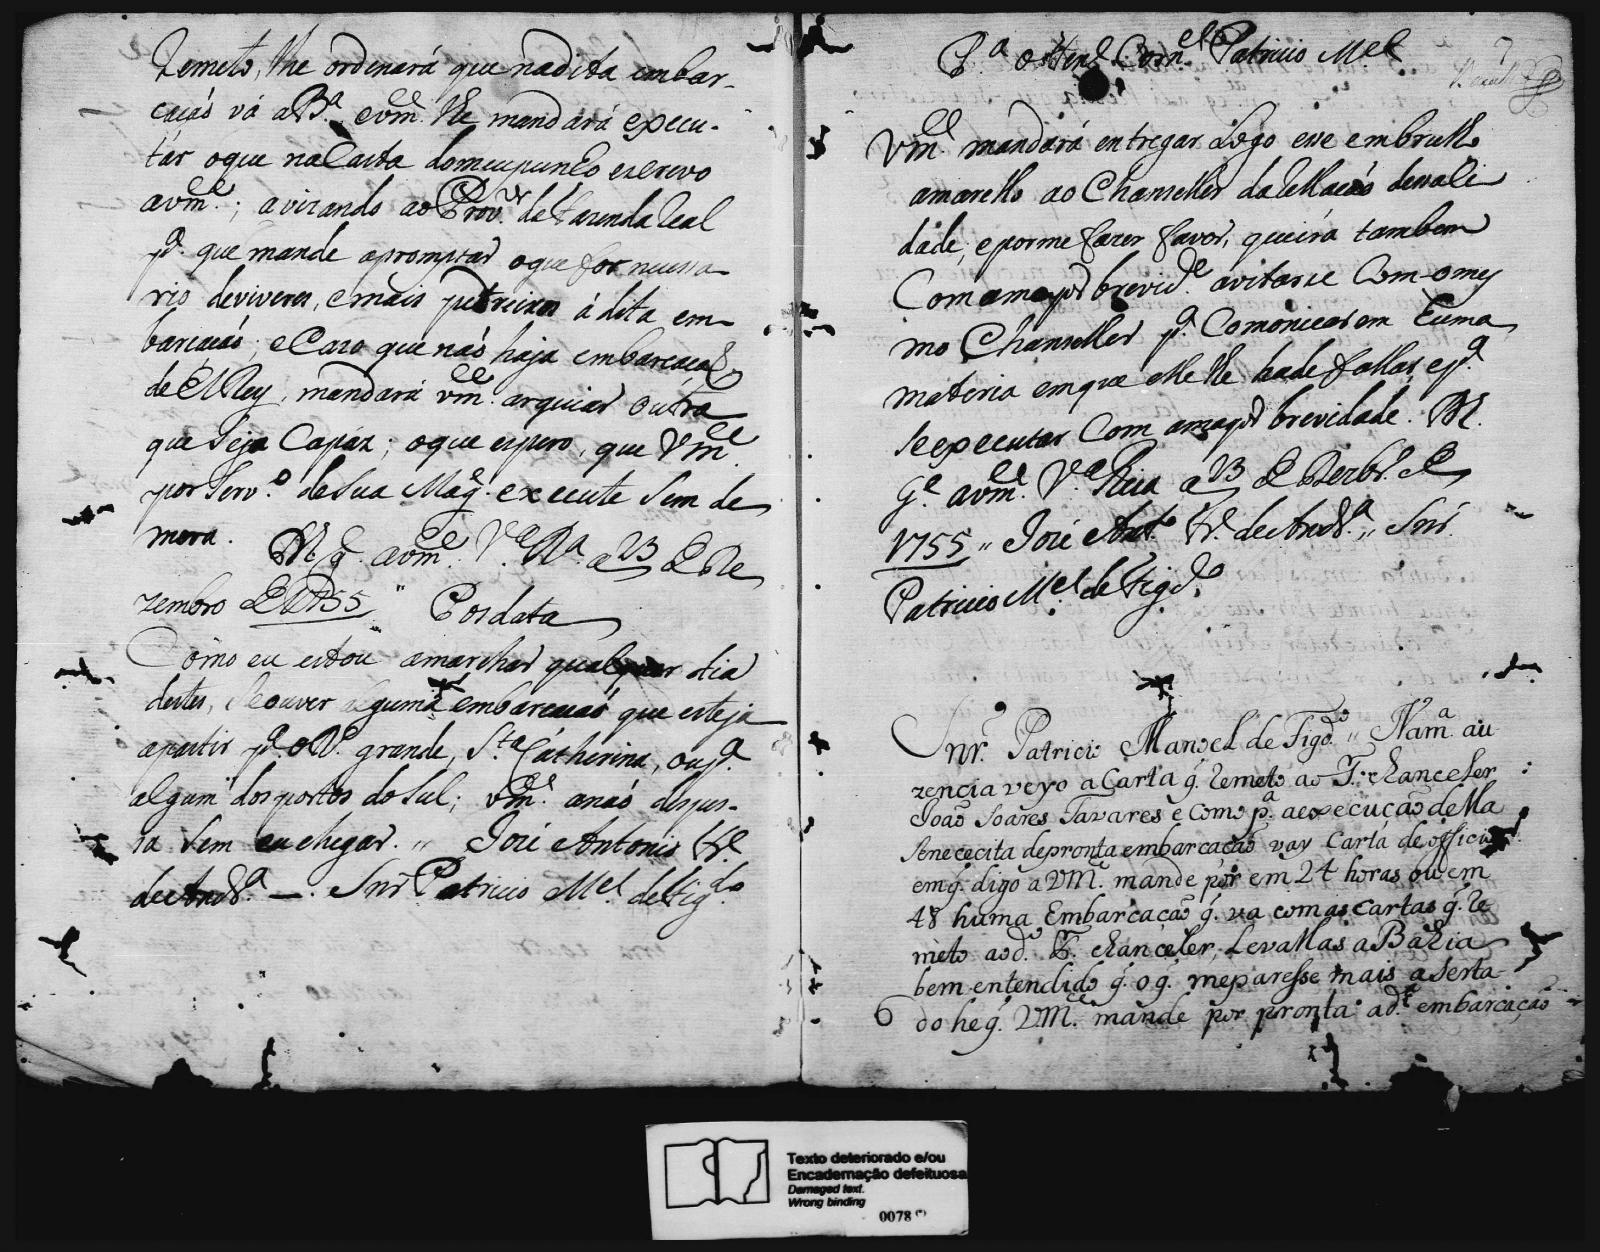 Remeto, lhe ordenará que na dita embar-
cacaó vá a B.ª evm.ce lhe mandará execu-
tar oque na Carta domeupunho escrevo
avm.ce; avizando ao Prov.or de fazenda Real
p.ª que mande apromptar oque for nessesa
rio deviveres, emais petreixos á dita em
barcacaó; eCazo que naó haja embarcacaó
de ElRey, mandará vm.ce outra
que Seja Capáz; oque espero, que Vm.ce
por Serv.º de Sua Mag.e execute Sem de
mora. D.s g.e avm.ce V.ª R.ª a 23 de De
zembro de 1755 " Posdata
Como eu estou amarchar qualquer dia
destes, Seouver alguma embarcacaó que esteja
apartir p.ª oR.º grande, S.ta Catherina, oup.ª
algum dos portos do Sul; vm.ce anaó despes-
sa Sem eu chegar. " Joze Antonio Fr.e
deAndr.ª —. Snr Patricio M.el de Fig.do
P.ª o Then.e Corn.el Patricio M.el
Vm.ce mandará entregar Logo esse embrulho
amarello ao Chanseller da Rellacaó dessa Ci
dade, e por me fazer favor, queira tambem
Com amayor brevid.e avistarse Com o mes
mo Chanseller p.ª Comonicarem huma
materia emque elle lhe hade fallar, ep.ª
Seexecutar Com amayor brevidade. D.s
G.e avm.ce V.ª Rica a 23 de Dezbr.º de
1755 " Joze Ant.º Fr.e deAndr.ª " Snr.
Patricio M.el de Fig.do
Snr. Patricio Manoel de Fig.do " Nam.ª au
zencia veyo a Carta q. Remeto ao D.r chanceler
Joaõ Soares Tavares e como p.ª aexecuçaõ della
Senececita depronta embarcacaõ vay Carta de officio
em q. digo a VM.ce mande pôr em 24 horas ou em
48 huma Embarcacaõ q. va com as cartas q. Re
meto ao d.º D.r chanceler, Levallas a Bahia
bem entendido q. o q. meparesse mais aserta
do he q. VM.ce mande por pronta a d.ª embarcação
6
Texto deteriorado e/ou
Encadernação defeituosa
Damaged text.
Wrong binding
0078 (*)